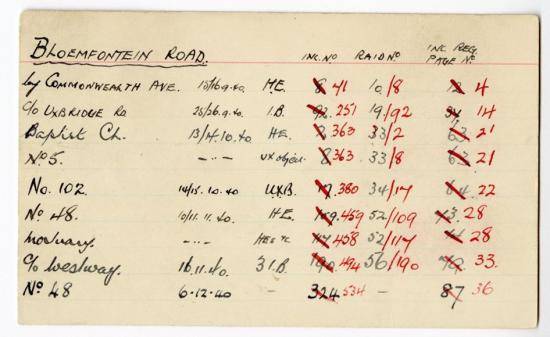 BLOEMFONTEIN ROAD. INC. NO RAID NO INC. REG. PAGE No
by COMMONWEALTH AVE. 15/16.9.40 H.E. 8 41 10/8 12 4
C/O UXBRIDGE RD 25/26.9.40 I.B. 92 251 19/92 34 14
Baptist Ch. 13/14.10.40 HE. 2 363 33/2 63 21
No 5. -··- UX object. 8 363 33/8 63 21
No. 102. 14/15.10.40 UXB. 17 380 34/17 64 22
No 48. 10/11.11.40. H.E. 109 459 52/109 28
mortuary. -··- HE & 117 458 52/117 28
C/o Westway. 16.11.40. 3 I.B. 190 494 56/190 78 33.
No 48 6-12-40 324 534 - 87 36